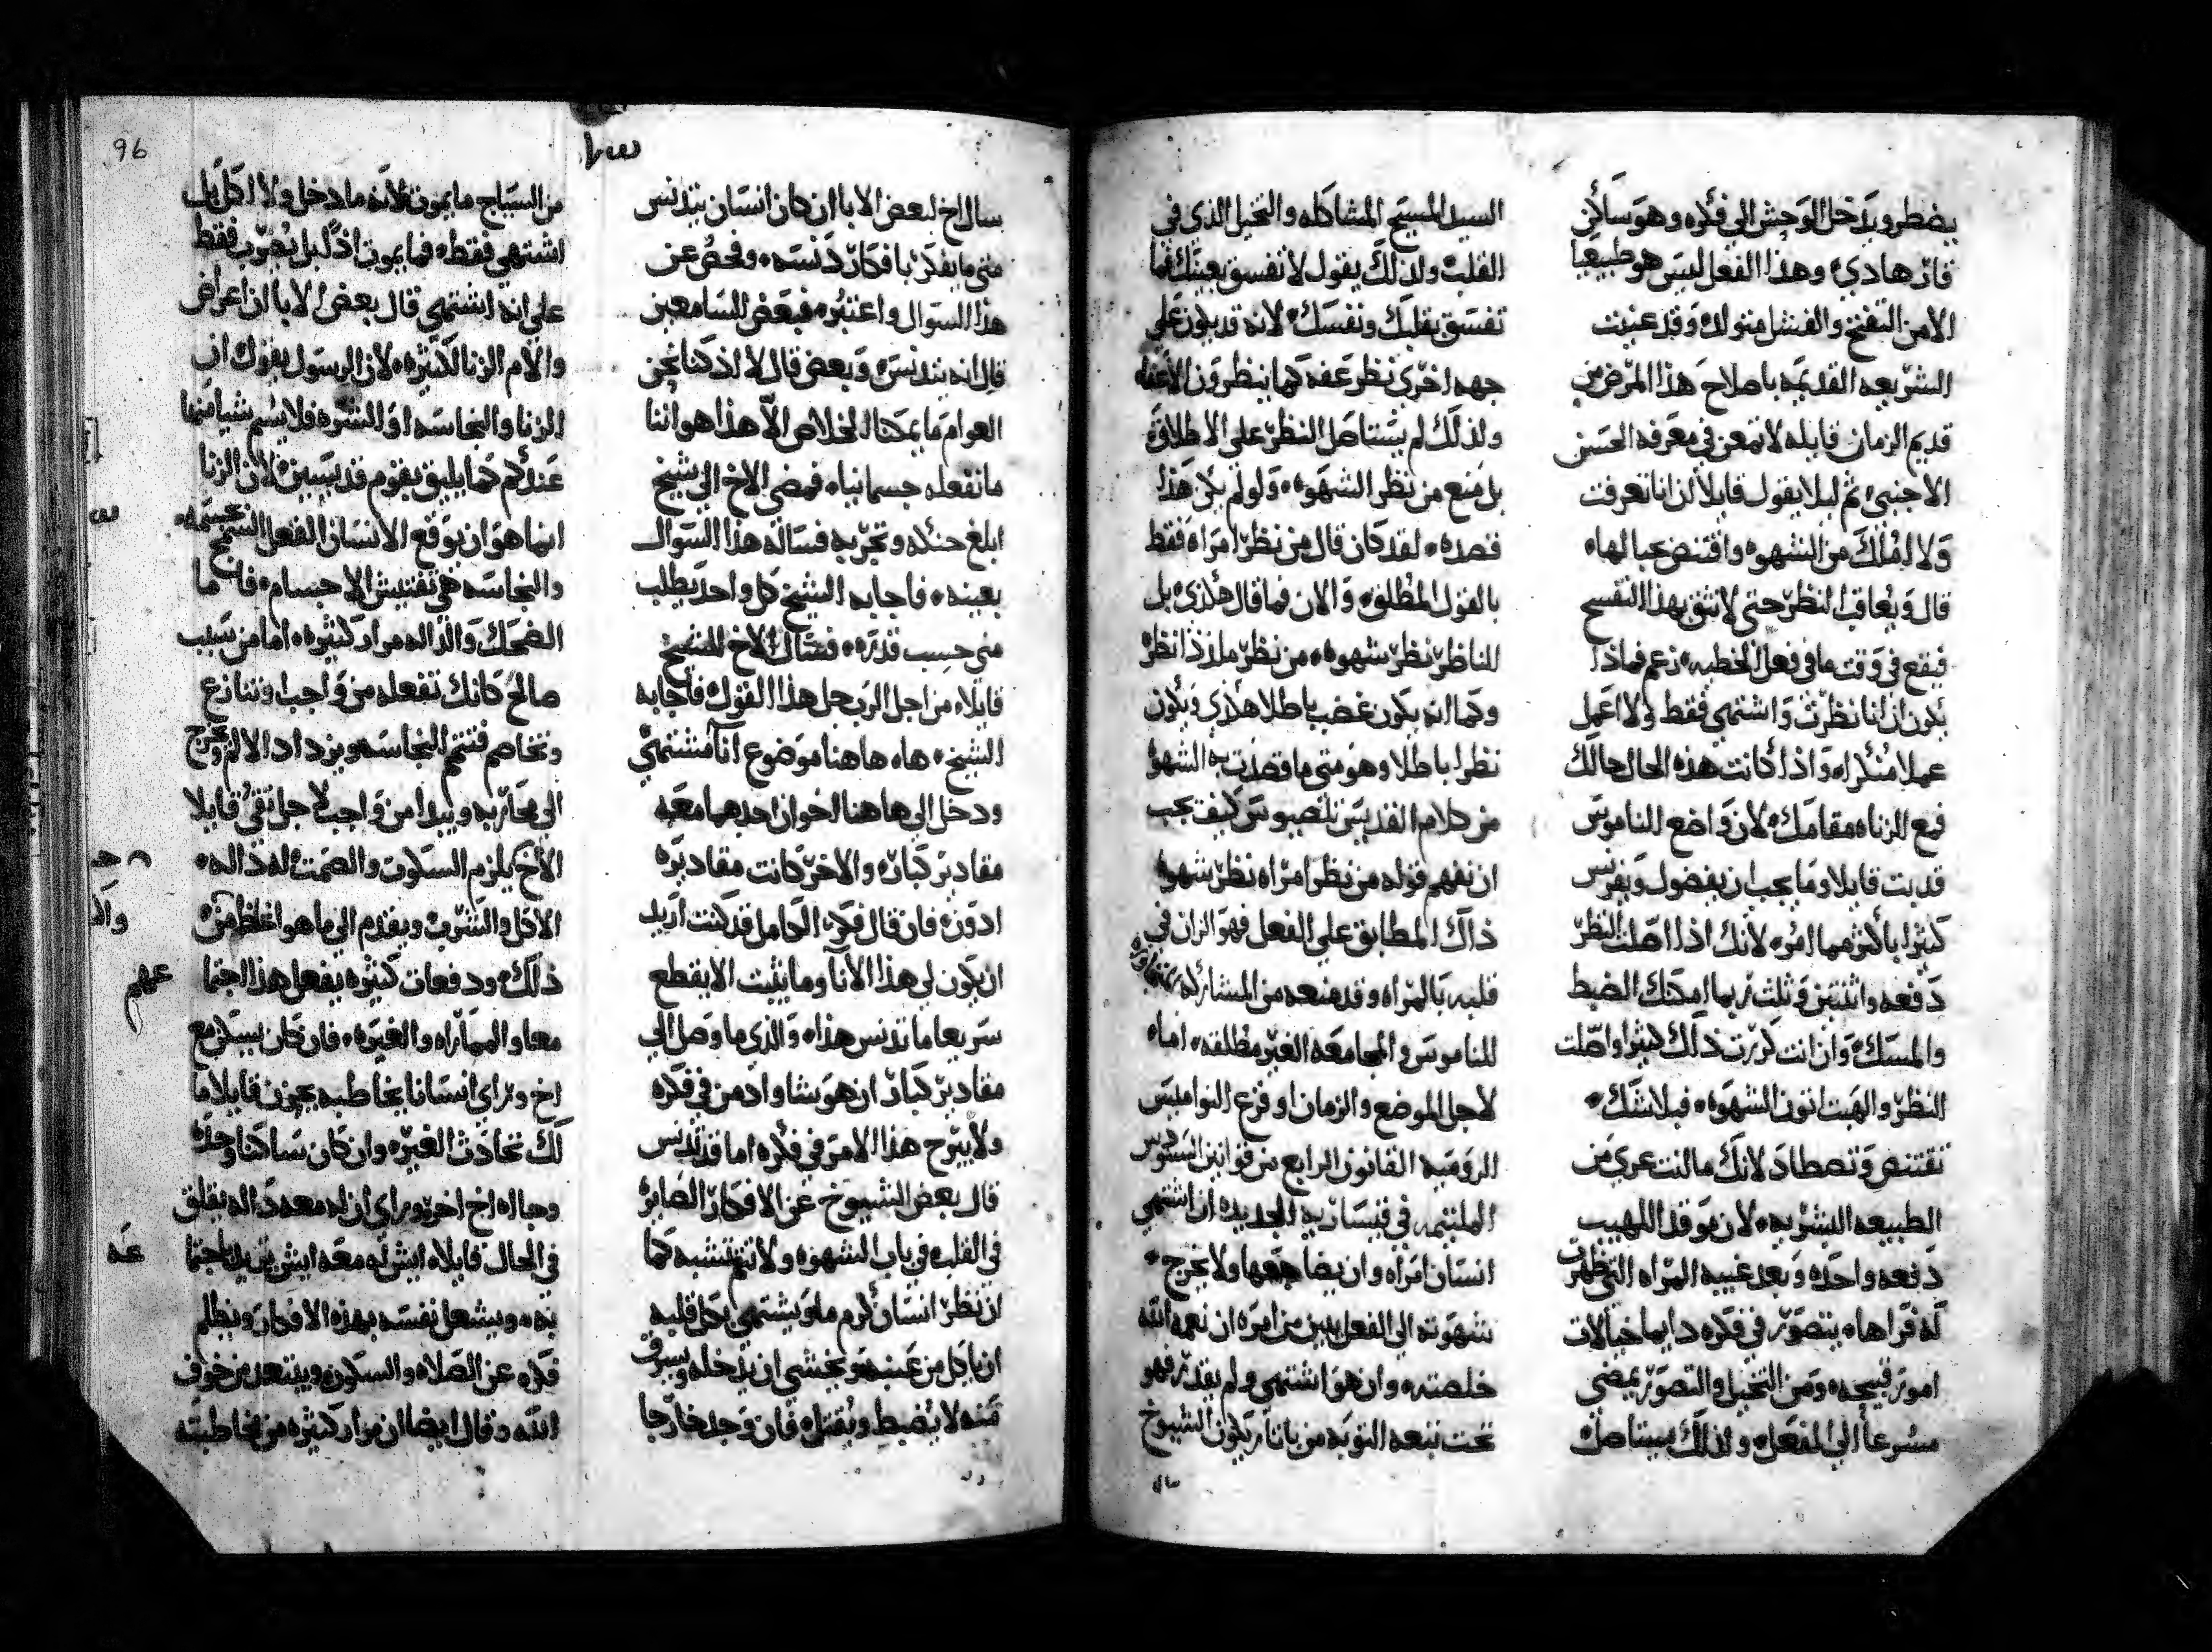 يضطر ويدخل الوحش الي فكره وهو ساكن
قار هادي وهذا الفعل ليس هو طبيعيا
الامن التفتح والفشل متولد وقد عنيت
الشريعه القديمه باصلاح هذا المرض من
قديم الزمان قايله لا تمعن في معرفه الحسن
الاجنبي ثم ليلا يقول قايلا ان انا تعرفت
ولا امتلك من الشهوه واقتنص بحبالها
قال ويعاقب النظر حتي لا تثق بهذا التفسح
فيقع في وقت ما في فعل الخطيه زعم فماذا
يكون ان انا نظرت واشتهي فقط ولا اعمل
عملا منكرا واذا كانت هذه الحال حالك
فمع الزناه مقامك لان واضع الناموس
قد بت قايلا وما يجب ان بفضول ويفرس
كثيرا باكثر مما امره لانك اذا اصلت النظر
دفعه واثنتين وثلث ربما امكنك الضبط
والمسك وان انت كررت ذلك كثيرا واصلت
النظر والهبت اتون الشهوه فبلا شك
تقتنص وتصطاد لانك ما انت عري من
الطبيعه البشريه لان موقد اللهيب
دفعه واحده وبعد غيبه المراه التي ظهرت
له قراها يتصور في فكره دايما خيالات
امور قبيحه ومن التخيل والتصور يمضي
مسرعا الي الفعل ولذلك يستاصل
السيد المسيح المشاكله والتخيل الذي في
القلب ولذلك يقول لا تفسق بعينك فما
تفسق بقلبك ونفسك لانه قد يكون علي
جهه اخري نظر عفه كما ينظرون الاعفاء
ولذلك لم يستاصل النظر علي الاطلاق
بل منع من نظر الشهوه ولو لم يكن هذا
قصده لقد كان قال من نظر امراه فقط
بالقول المطلق والان فما قال هكذي بل
الناظر نظر شهوه من نظر ملذذا نظر
وكما انه يكون غضب باطلا هكذي ويكون
نظرا باطلا وهو متي ما قصدت به الشهوه
من كلام القديس تلصيوس كيف يجب
ان نفهم قوله من نظر امراه نظر شهوه
ذاك المطابق علي الفعل فهو الزان في
قلبه بالمراه وقد منعه من المشاركه
الناموس والمجامعه الغير مطلقه اما
لاجل الموضع والزمان او فزع النواميس
الروميه القانون الرابع من قوانين السنودس
الملتيمه في قيساريه الجديده ان اشتهي
انسان امراه وان يضاجعها ولا يخرج
شهوته الي الفعل يبين من امره ان نعمه الله
خلصته وان هو اشتهي ولم يقدر فهو
تحت تبعه التوبه من باناريكون الشيوخ
سال
سال اخ لبعض الابا ان كان انسان يتدنس
متي ما يفكر بافكار دنسه وفحص عن
هذا السوال واعتبره فبعض السامعين
قال انه يتدنس وبعض قال لا اذ كنا نحن
العوام ما يمكنا الخلاص الا هذا هو اننا
ما نفعله جسمانيا فمضي الاخ الي شيخ
ابلغ حنكه وتجربه فساله هذا السوال
بعينه فاجابه الشيخ كل واحد يطلب
مني حسب قدره فسال الاخ للشيخ
قايلا من اجل الرب حل هذا القول فاجابه
الشيخ ها هاهنا موضوع انا مشتهي
ودخل الي هاهنا اخوان احدهما معه
مقادير كبار والاخر كانت مقاديره
ادون فان قال فكر الكامل قد كنت اريد
ان يكون لي هذا الانا وما يثبت الا يقطع
سريعا ما تدنس هذا والذي ما وصل الي
مقادير كبار ان هو شا وادمن في فكره
ولا يبرح هذا الامر في فكره اما قد تدنس
قال بعض الشيوخ عن الافكار الصايره
في القلب في باب الشهوه ولا تتم تشبه كما
ان نظر انسان كرم ما ويشتهي بكل قلبه
ان ياكل من عنبه ويخشي ان يدخله ويسرق
منه لا يضبط ويقتل فان وجد خارجا
من السياج ما يموت لانه ما دخل ولا اكل بل
اشتهي فقط فما يموت اذا بل يضرب فقط
علي انه اشتهي قال بعض الابا ان اعراض
والام الزنا كثيره لان الرسول يقول ان
الزنا والنجاسه او الشره فلا يسم شيا منها
عندكم كما يليق بقوم قديسين لان الزنا
انما هو ان يوقع الانسان الفعل السمج بجسمه
والنجاسه هي تفتيش الاجسام فاما
الضحك والداله مرار كثيره اما من سبب
صالح كانك تفعله من واجب او تنازع
وتخاصم فتتم النجاسه ويزداد الالم ويخرج
الي محاربه ويبدا من واجب لاجل تقي قايلا
الاخ يلزم السكوت والصمت له داله
الاكل والشرب ويقدم الي ما هو اغلظ من
ذلك ودفعات كثيره يفعل هذا اجتما
معا والمماراه والغيره فان كان يسكن مع
اخ وراي انسانا يخاطبه يحزن قايلا ما
لك تحادث الغير وان كان ساكنا وحده
وجا اه اخ اخر وراي ان له معه داله يقلق
في الحال قايلا ايش له معه ايش يريد باجتما
به ويشعل نفسه بهذه الافكار ويظلم
فكره عن الصلاه والسكون ويبتعد من خوف
الله وقال ايضا ان مرار كثيره من مخاطبته
96